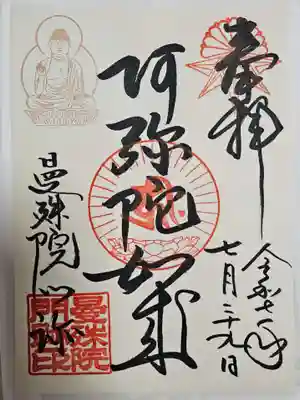 奉拝
令和七年
七月二十九日
阿弥陀如来
曼殊院門跡
曼殊院
門跡